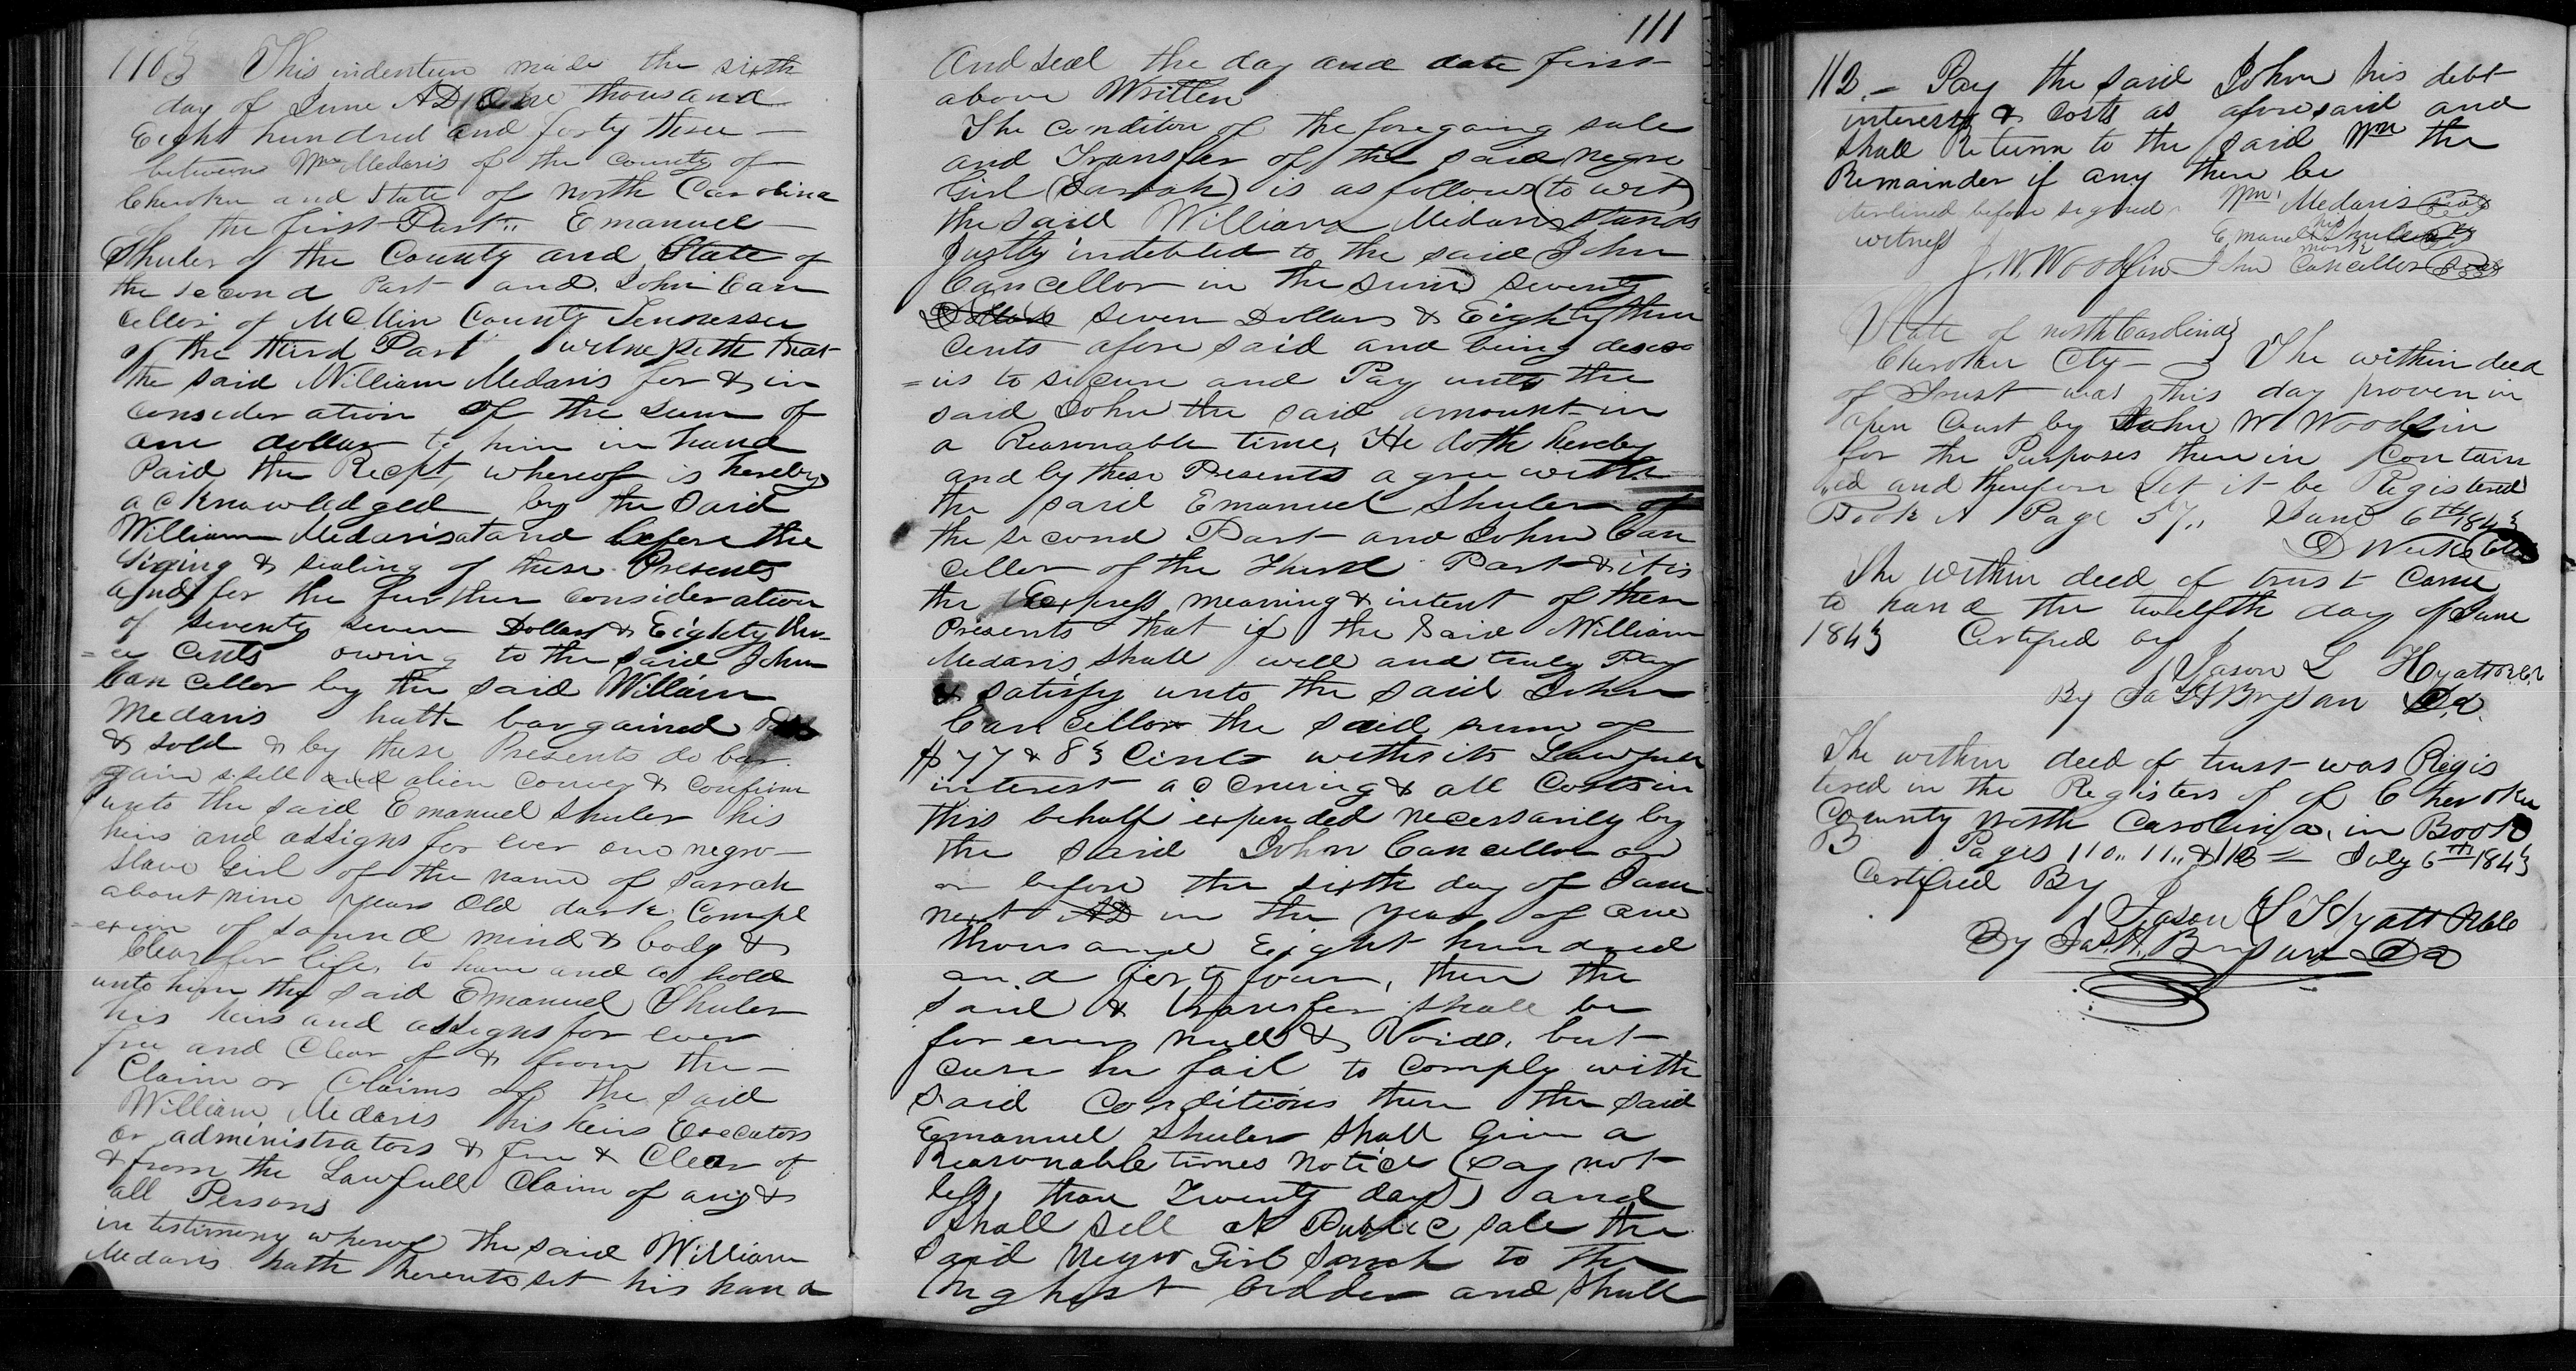 110} This indenture made the sixth
day of June AD One thousand
Eight hundred and forty three —
between Wm Medaris of the County of
Cherokee and State of North Carolina
of the first Part,, Emanuel —
Shuler of the County and State of
the second Part and John Can
celler of McMin County Tennessee
of the third Part witnesseth that
the said William Medaris for & in
Consideration of the sum of
one dollar to him in hand
Paid the Recpt, whereof is hereby
acknowledged by the said
William Medaris at and before the
Siging & sealing of these Presents
and for the further consideration
of seventy seven Dollars & Eighty thre-
=ee Cents owing to the said John
Canceller by the said William
Medaris hath bargained
& sold & by these Presents do bar-
gain sell and alien convey & confirm
unto the said Emanuel Shuler his
heirs and assigns for ever one negro —
Slave Girl of the name of Sarrah
about nine years Old dark Compl
=exion of sound mind & body &
Clear for life, to have and to hold
unto him the said Emanuel Shuler
his heirs and assigns for ever
free and Clear of & from the —
Claim or Claims of the said
William Medaris his heirs Executors
or administrators & free & Clear of
& from the Lawfull Claim of any &
all Persons
in testimony whereof the said William
Medaris hath hereunto set his hand
111
And seal the day and date first
above Written
The Conditon of the foregoing sale
and Transfer of the said negro
Girl (Sarrah) is as follows (to wit)
the said William Medaris stands
Justly indebted to the said John
Cancellor in the sum seventy
Dollars seven Dollars & Eighty three
Cents afore said and being desiro
=us to secure and Pay unto the
said John the said amount in
a Reasonable time, He doth hereby
and by these Presents agree with
the said Emanuel Shuler of
the second Part and John Can
celler of the Third Part & it is
the Express meaning & intent of these
Presents that if the said William
Medaris shall well and truly Pay
& satisfy unto the said John
Cancellor the said sum of
$77 & 83 Cents with its Lawfull
interest accruing & all Costs in
this behalf expended necessarily by
the said John Cancellor on
or before the sixth day of June
next AD in the year of one
thousand Eight hundred
and forty four, then the
said & transfer shall be
for ever null & Void, but
case he fail to comply with
said Conditions then the said
Emanuel Shuler shall Give a
Reasonable times notice (say not
less than Twenty days) and
shall sell at Public sale the
said Negro Girl Sarrah to the
highest bidder and shall
112 — Pay the said John his debt
interest & Costs as aforesaid and
shall Return to the said Wm the
Remainder if any there be
iterlined before signed Wm Medaris Seal
witness Emanuel his mark Shuler Seal
J. W. Woodfin John Canceller Seal
State of North Carolina}
Cherokee Cty — } The within deed
of Trust was this day proven in
open Court by John W Woodfin
for the Purposes therein Contain
ed and therefore Let it be Registered
Book A Page 57,, June 6th 1843
D Weeks Clk
The within deed of trust Came
to hand the twelfth day of June
1843 Certified by
Jason L Hyatt
By Ja H Bryson
The within deed of trust was Regis
tered in the Registers of of Cherokee
County North Carolina, in Book
B Pages 110,, 11,, & 112 — July 6th 1843
Certified By
Jason L Hyatt
By Jas. H. Bryson